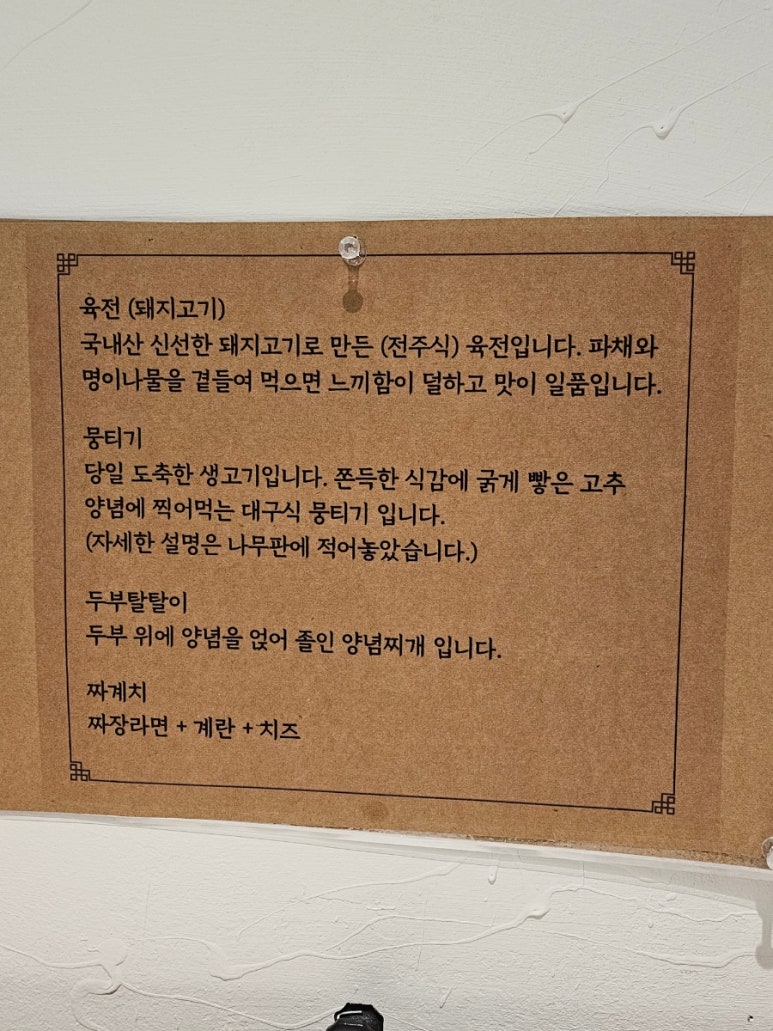 육전 (돼지고기)
국내산 신선한 돼지고기로 만든 (전주식) 육전입니다. 파채와
명이나물을 곁들여 먹으면 느끼함이 덜하고 맛이 일품입니다.
뭉티기
당일 도축한 생고기입니다. 쫀득한 식감에 굵게 빻은 고추
양념에 찍어먹는 대구식 뭉티기 입니다.
(자세한 설명은 나무판에 적어놓았습니다.)
두부탈탈이
두부 위에 양념을 얹어 졸인 양념찌개 입니다.
짜계치
짜장라면 + 계란 + 치즈